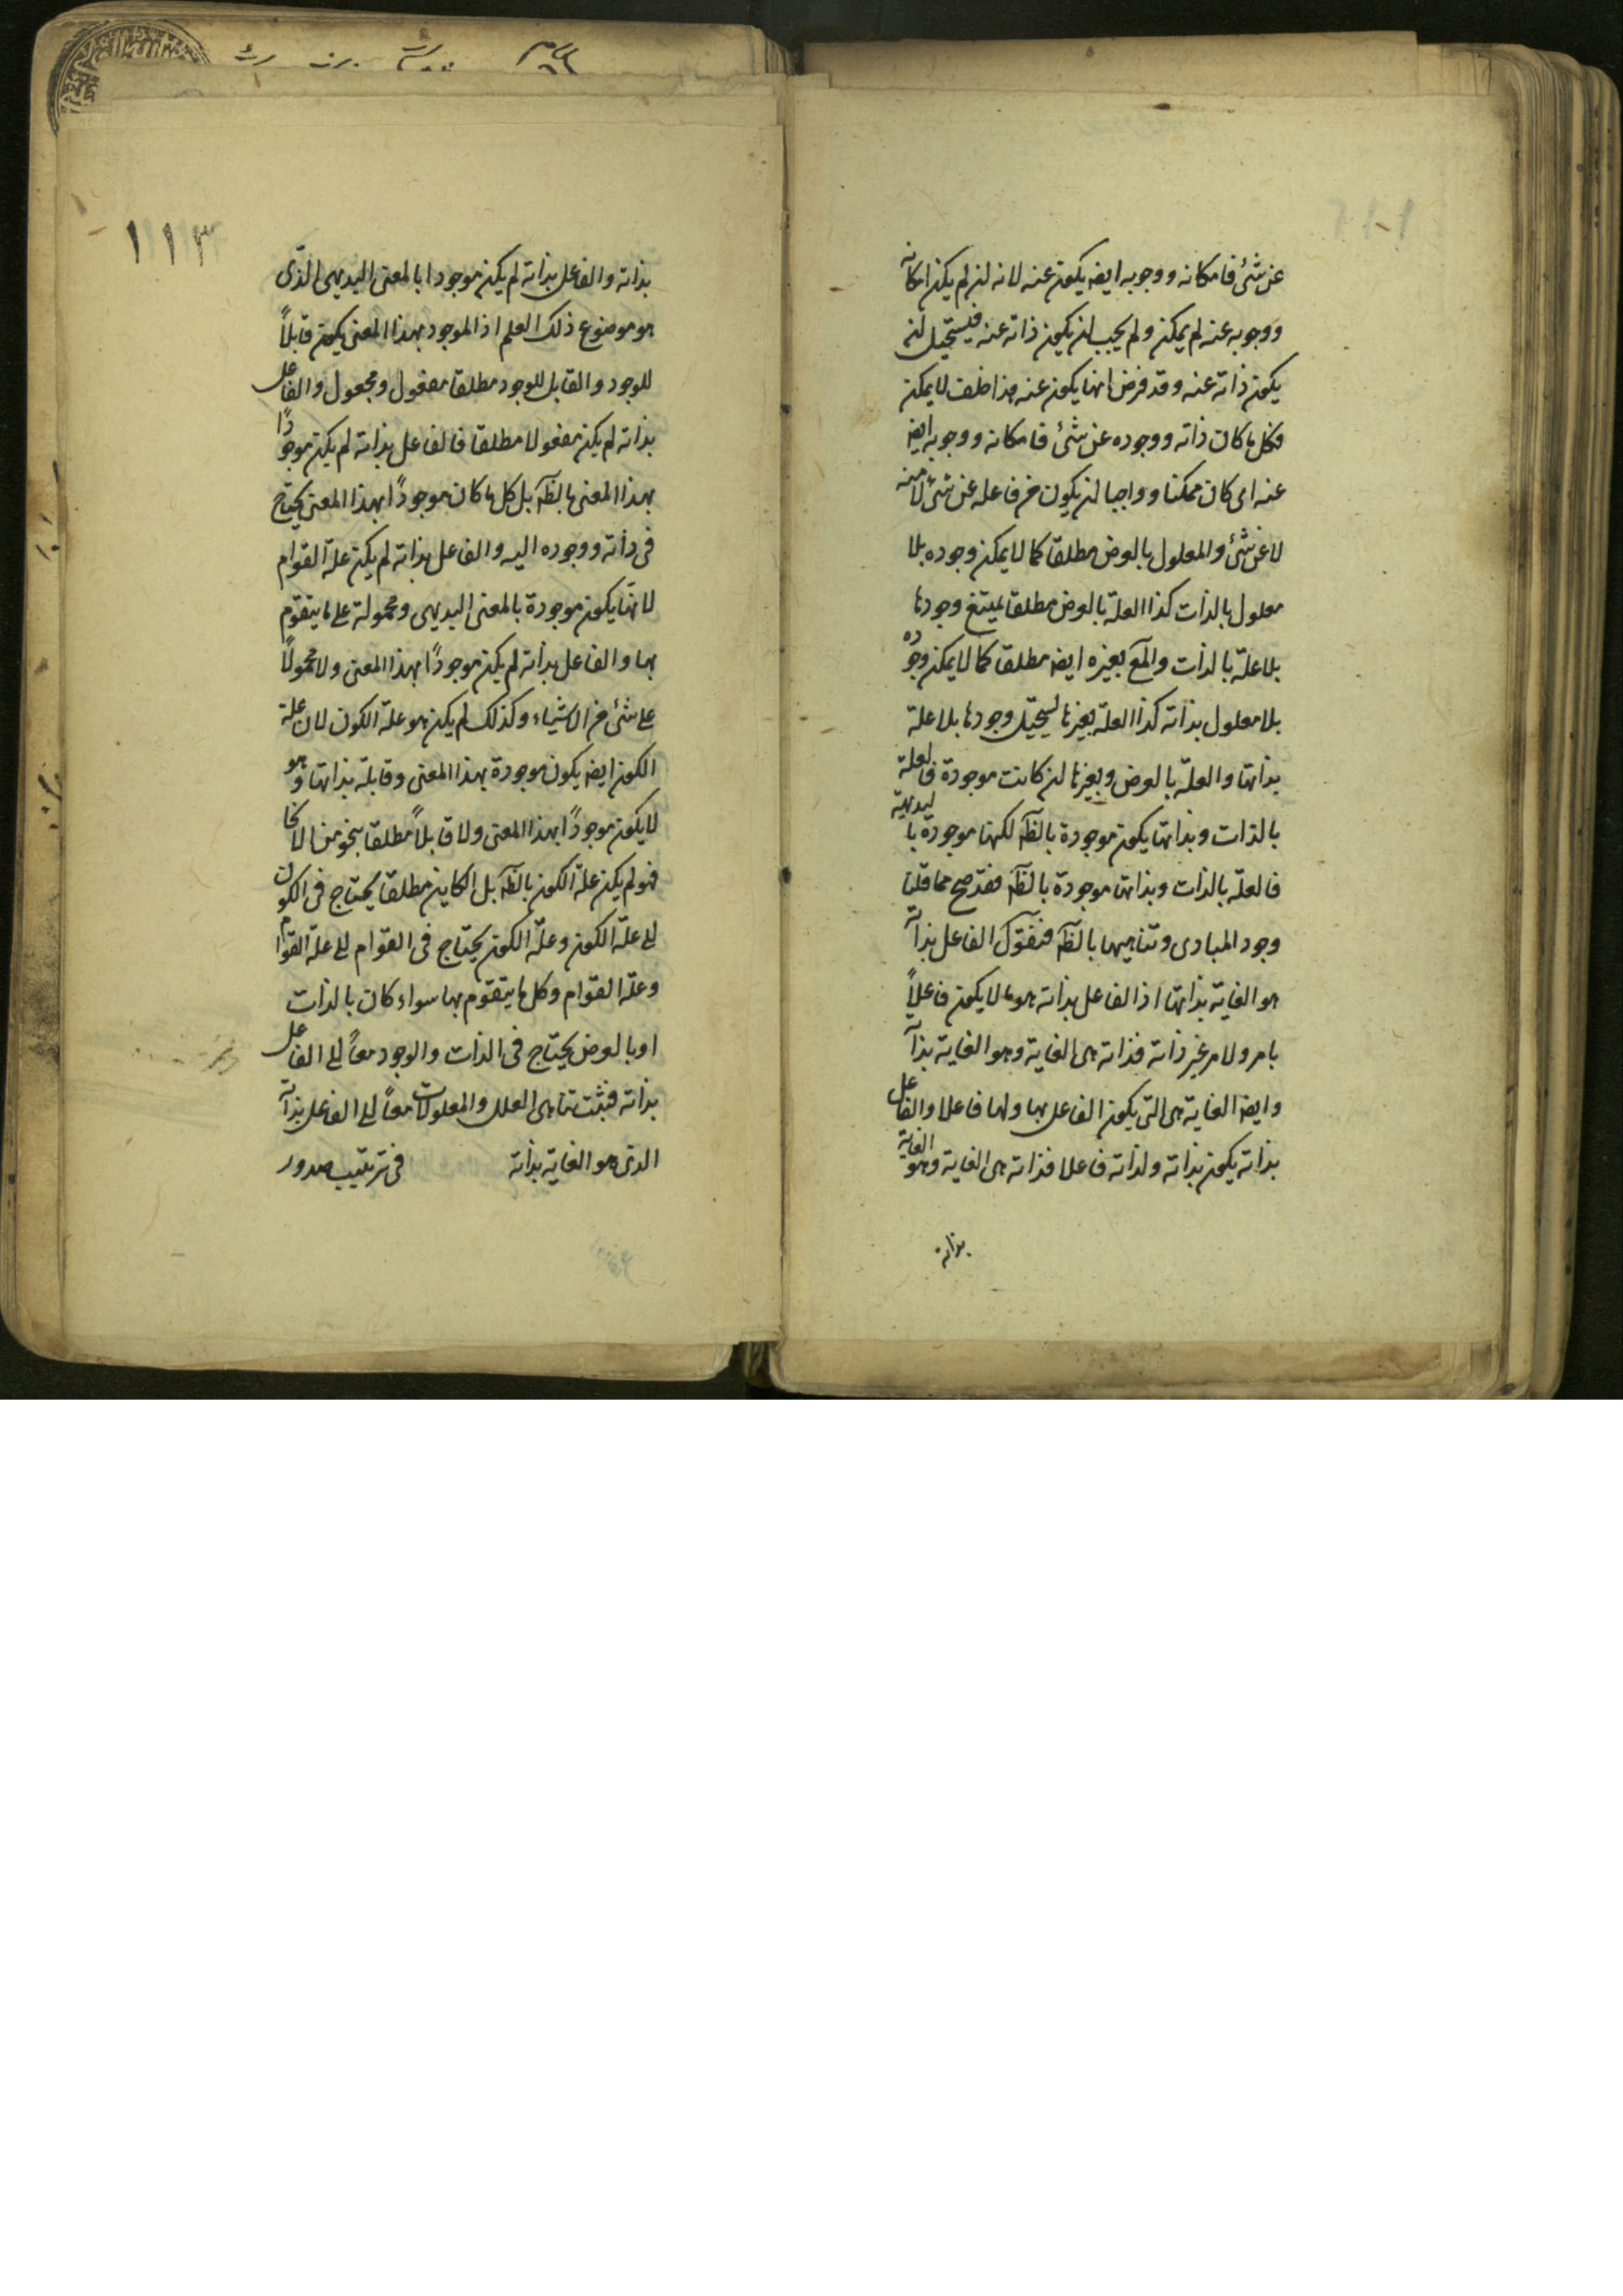 عن شئ فامكانه ووجوبه ايضه يكون عنه لانه لن لم يكن امكانه
ووجوبه عنه لم يمكن ولم يجب لن يكون ذاته عنه فيستحيل لن
يكون ذاته عنه وقد فرض انها يكون عنه هذا خلف لا يمكن
فكل ما كان ذاته ووجوده عن شئ فامكانه ووجوبه ايضه
عنه اى كان ممكنا وواجبا لن يكون من فاعله عن شئ لا منه
لا عن شئ والمعلول بالعرض مطلقا كما لا يمكن وجوده بلا
معلول بالذات كذا العلة بالعرض مطلقا يمتنع وجودها
بلا علة بالذات والمع بغيره ايضه مطلقا كما لا يمكن وجوده
بلا معلول بذاته كذا العلة بغيرها ليستحيل وجودها بلا علة
بذاتها والعلة بالعرض وبغيرها لن كانت موجودة فالعلة
بالذات وبذاتها يكون موجودة بالظه لكنها موجودة بالبديهية
فالعلة بالذات وبذاتها موجودة بالظه فقد صح مما قلنا
وجود المبادى وتناهيها بالظه فنقول الفاعل بذاته
هو الغاية بذاتها اذ الفاعل بذاته هو ما لا يكون فاعلاً
بامر ولامر غير ذاته فذاته هى الغاية وهو الغاية بذاته
وايضه الغاية هى التى يكون الفاعل بها ولها فاعلا والفاعل
بذاته يكون بذاته ولذاته فاعلا فذاته هى الغاية وهو الغاية
بذاته
١١٣
بذاته والفاعل بذاته لم يكن موجودا بالمعنى البديهى الذى
هو موضوع ذلك العلم اذ الموجود بهذا المعنى يكون قابلاً
للوجود والقابل للوجود مطلقا مفعول ومجعول والفاعل
بذاته لم يكن مفعولا مطلقا فالفاعل بذاته لم يكن موجوداً
بهذا المعنى بالظه بل كل ما كان موجوداً بهذا المعنى يحتاج
فى ذاته ووجوده اليه والفاعل بذاته لم يكن علة القوام
لانها يكون موجودة بالمعنى البديهى ومحمولة على ما يتقوم
بها والفاعل بذاته لم يكن موجوداً بهذا المعنى ولا محمولاً
على شئ من الاشياء وكذلك لم يكن هو علة الكون لان علة
الكون ايضه يكون موجودة بهذا المعنى وقابلة بذاتها وهو
لا يكون موجوداً بهذا المعنى ولا قابلاً مطلقا بنحو من الانحا
فهو لم يكن علة الكون بالظه بل الكاين مطلقا يحتاج فى الكون
الى علة الكون وعلة الكون يحتاج فى القوام الى علة القوام
وعلة القوام وكل ما يتقوم بها سواء كان بالذات
او بالعرض يحتاج فى الذات والوجود معاً الى الفاعل
بذاته فثبت تناهى العلل والمعلولات معاً الى الفاعل بذاته
الذى هو الغاية بذاته فى ترتيب صدور